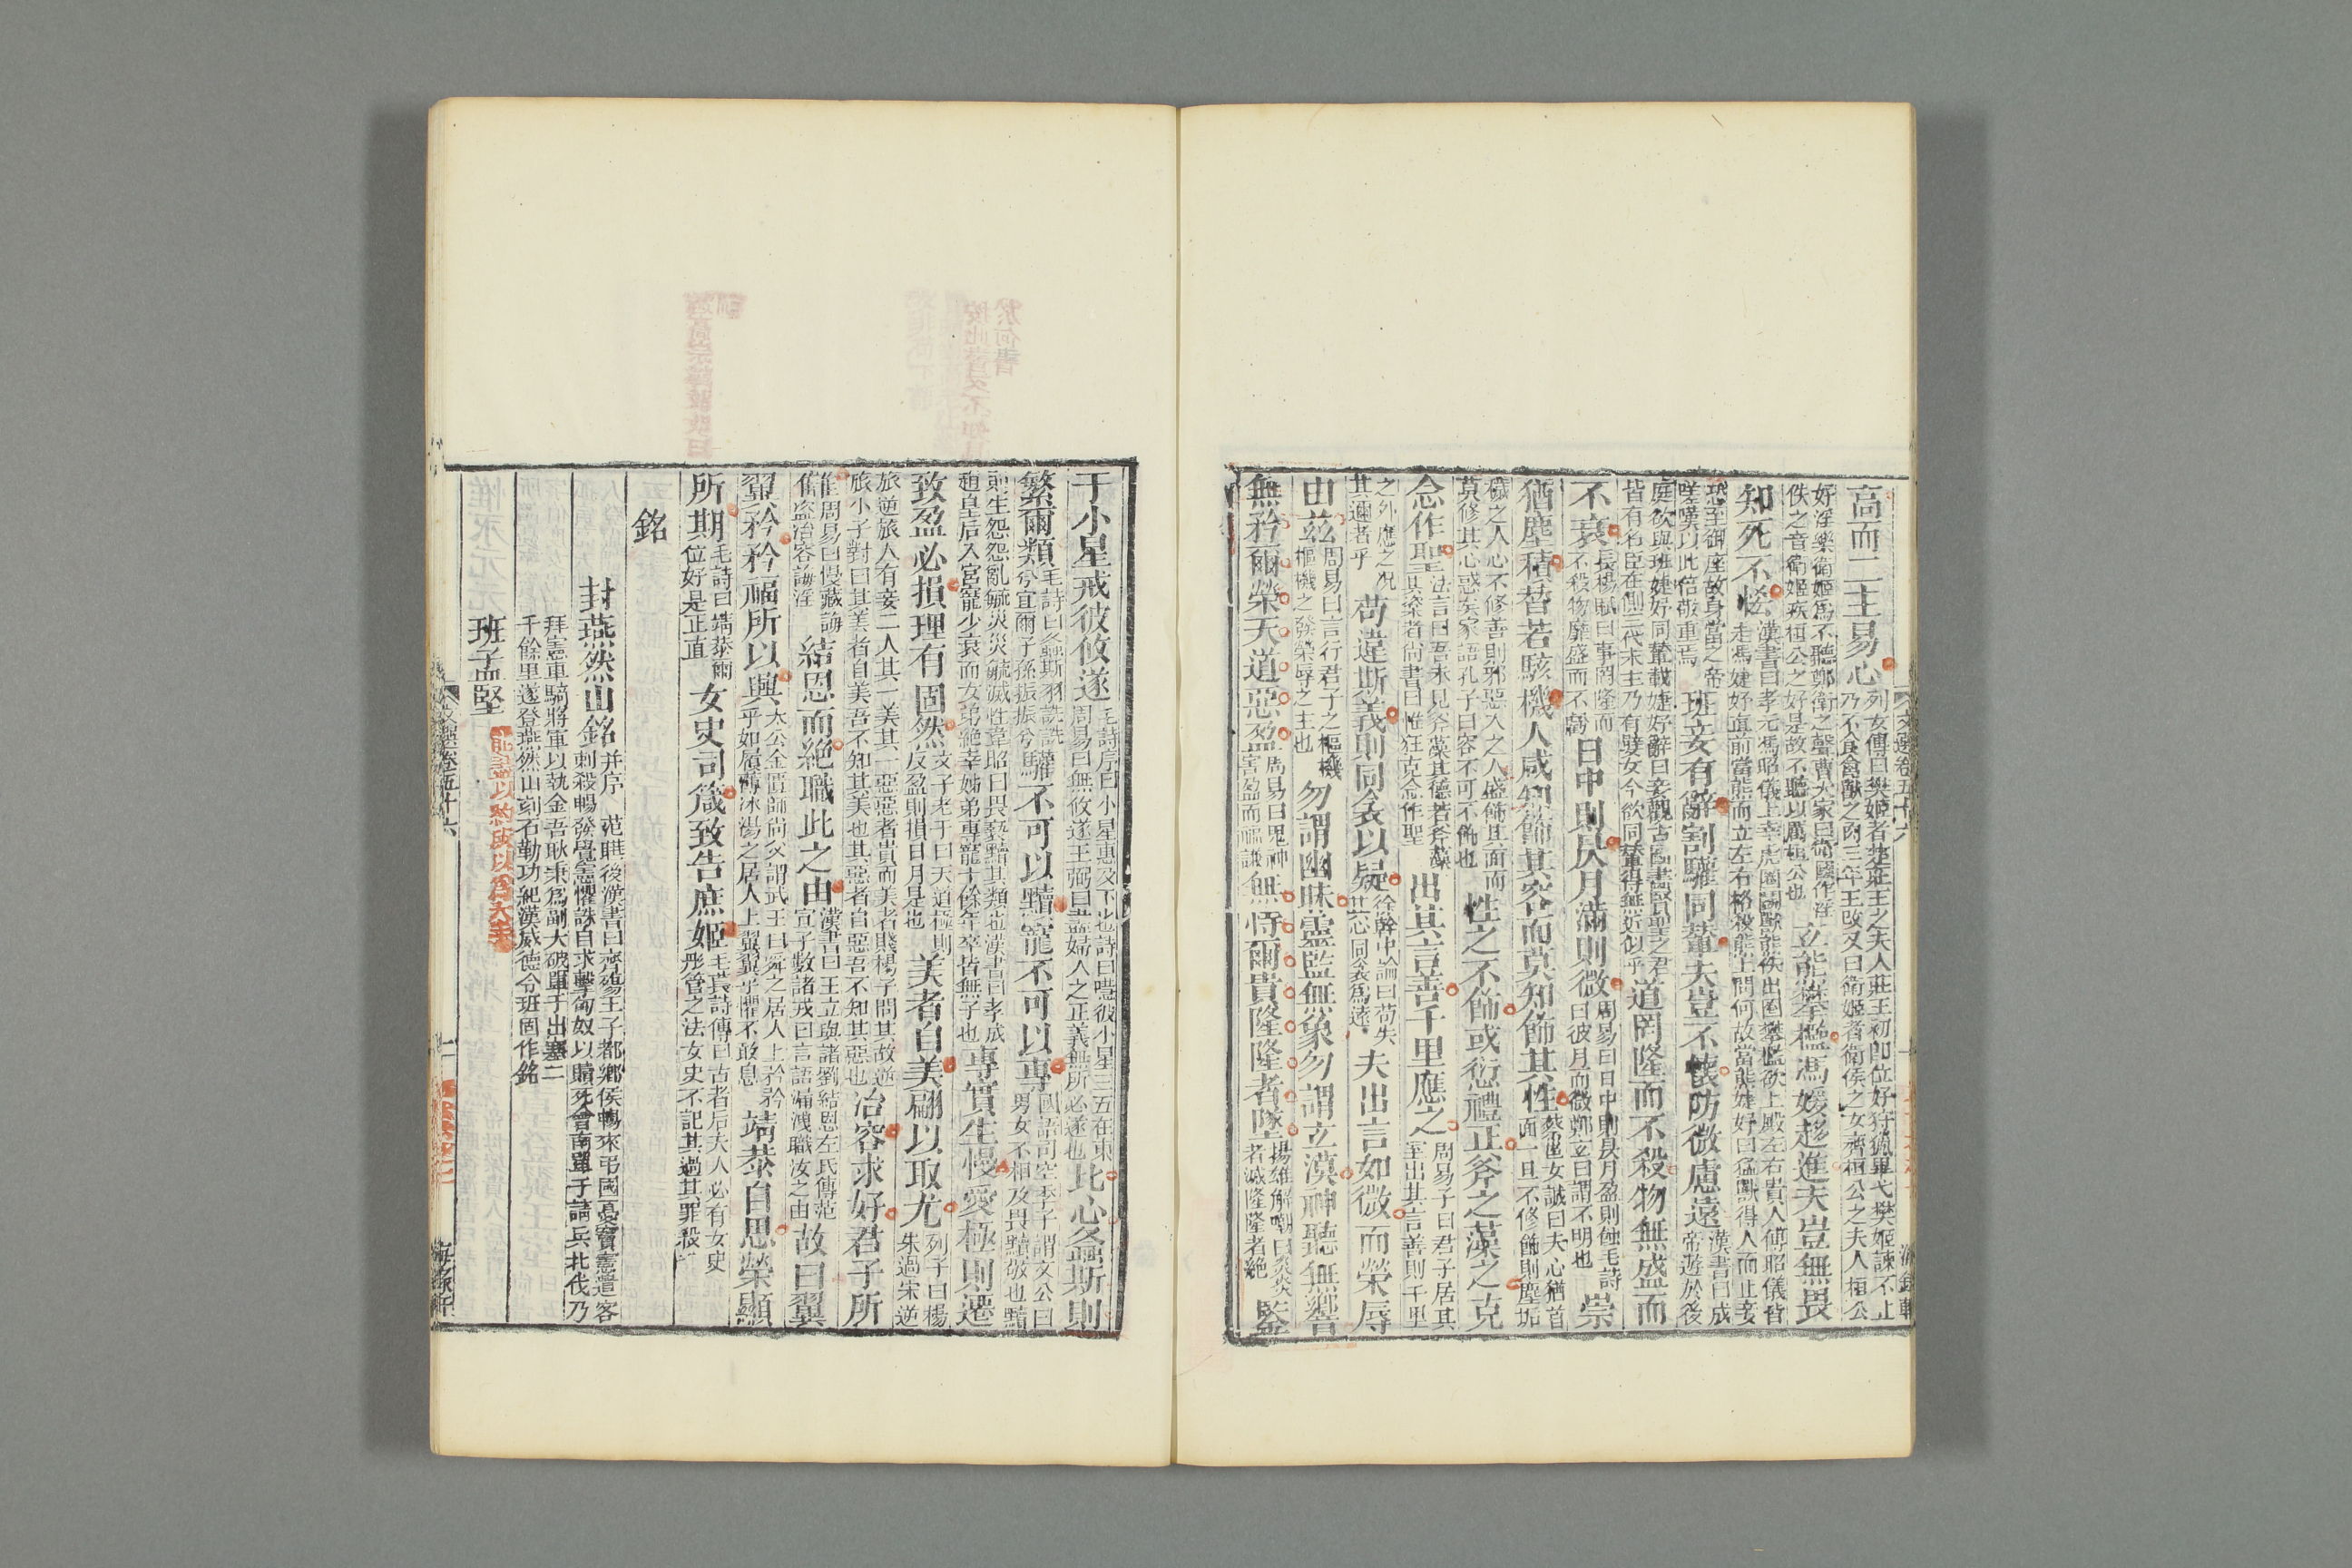 文選卷五十六
高而二主易心列女傳曰樊姬者楚莊王之夫人莊王初卽位好狩獵畢弋樊姬諫不止乃不食禽獸之肉三年王改又曰衛姬者衛侯之女齊桓公之夫人桓公
好淫樂衛姬爲不聽鄭衛之聲曹大家曰衛國作淫佚之音衛姬疾桓公之好是故不聽以厲桓公也立能攀檻馮媛趍進夫豈無畏
知死不恡漢書曰孝元馮昭儀上幸虎圈鬭獸熊佚出圈攀檻欲上殿左右貴人傅昭儀皆走馮婕妤直前當熊而立左右格殺熊上問何故當熊婕妤曰猛獸得人而止妾
恐至御座故身當之帝嗟嘆以此倍敬重焉班妾有辭割驩同輦夫豈不懷防微慮遠漢書曰成帝遊於後
庭欲與班婕妤同輦載婕妤辭曰妾觀古圖畫賢聖之君皆有名臣在側三代末主乃有嬖女今欲同輦得無近似乎道罔隆而不殺物無盛而
不衰長楊賦曰事罔隆而不殺物靡盛而不虧日中則昃月滿則微周易曰日中則昃月盈則蝕毛詩曰彼月而微鄭玄曰謂不明也崇
猶塵積替若駭機人咸知飾其容而莫知飾其性蔡邕女誡曰夫心猶首面一旦不修飾則塵垢
穢之人心不修善則邪惡入之人盛飾其面而莫修其心惑矣家語孔子曰容不可不飾也性之不飾或愆禮正斧之藻之克
念作聖法言曰吾未見斧藻其德若斧藻其楶者尚書曰惟狂克念作聖出其言善千里應之周易子曰君子居其室出其言善則千里
之外應之况其邇者乎苟違斯義則同衾以疑徐幹中論曰苟失其心同衾爲遠夫出言如微而榮辱
由兹周易曰言行君子之樞機樞機之發榮辱之主也勿謂幽昧靈監無象勿謂玄漠神聽無響
無矜爾榮天道惡盈周易曰鬼神害盈而福謙無恃爾貴隆隆者墜揚雄解嘲曰炎炎者滅隆隆者絶監
于小星戒彼攸遂毛詩序曰小星惠及下也詩曰嘒彼小星三五在東周易曰無攸遂王弼曰盡婦人之正義無所必遂也比心螽斯則
繁爾類毛詩曰螽斯羽詵詵兮宜爾子孫振振兮驩不可以黷寵不可以專國語司空季子謂文公曰男女不相及畏黷敬也黷
則生怨怨亂毓災災毓滅性韋昭曰畏䙝黷其類也漢書曰孝成趙皇后入宮寵少衰而女弟絶幸姊弟專寵十餘年卒皆無子也專實生慢愛極則遷
致盈必損理有固然文子老子曰天道極則反盈則損日月是也美者自美翩以取尤列子曰楊朱過宋逆
旅逆旅人有妾二人其一美其一惡惡者貴而美者賤楊子問其故逆旅小子對曰其美者自美吾不知其美也其惡者自惡吾不知其惡也冶容求好君子所
讎周易曰慢藏誨盜冶容誨淫結恩而絶職此之由漢書曰王立與諸劉結恩左氏傳范宣子數諸戎曰言語漏洩職汝之由故曰翼
翼矜矜福所以興太公金匱師尚父謂武王曰舜之居人上矜矜乎如履薄冰湯之居人上翼翼乎懼不敢息靖恭自思榮顯
所期毛詩曰靖恭爾位好是正直女史司箴敢告庶姬毛萇詩傳曰古者后夫人必有女史彤管之法女史不記其過其罪殺
銘
封燕然山銘并序 范曄後漢書曰齊殤王子都鄉侯暢來弔國憂竇憲遣客刺殺暢發覺憲懼誅自求擊匈奴以贖死會南單于請兵北伐乃
拜憲車騎將軍以執金吾耿秉爲副大破單于出塞二千餘里遂登燕然山刻石勒功紀漢威德令班固作銘
班孟堅
文選卷五十六